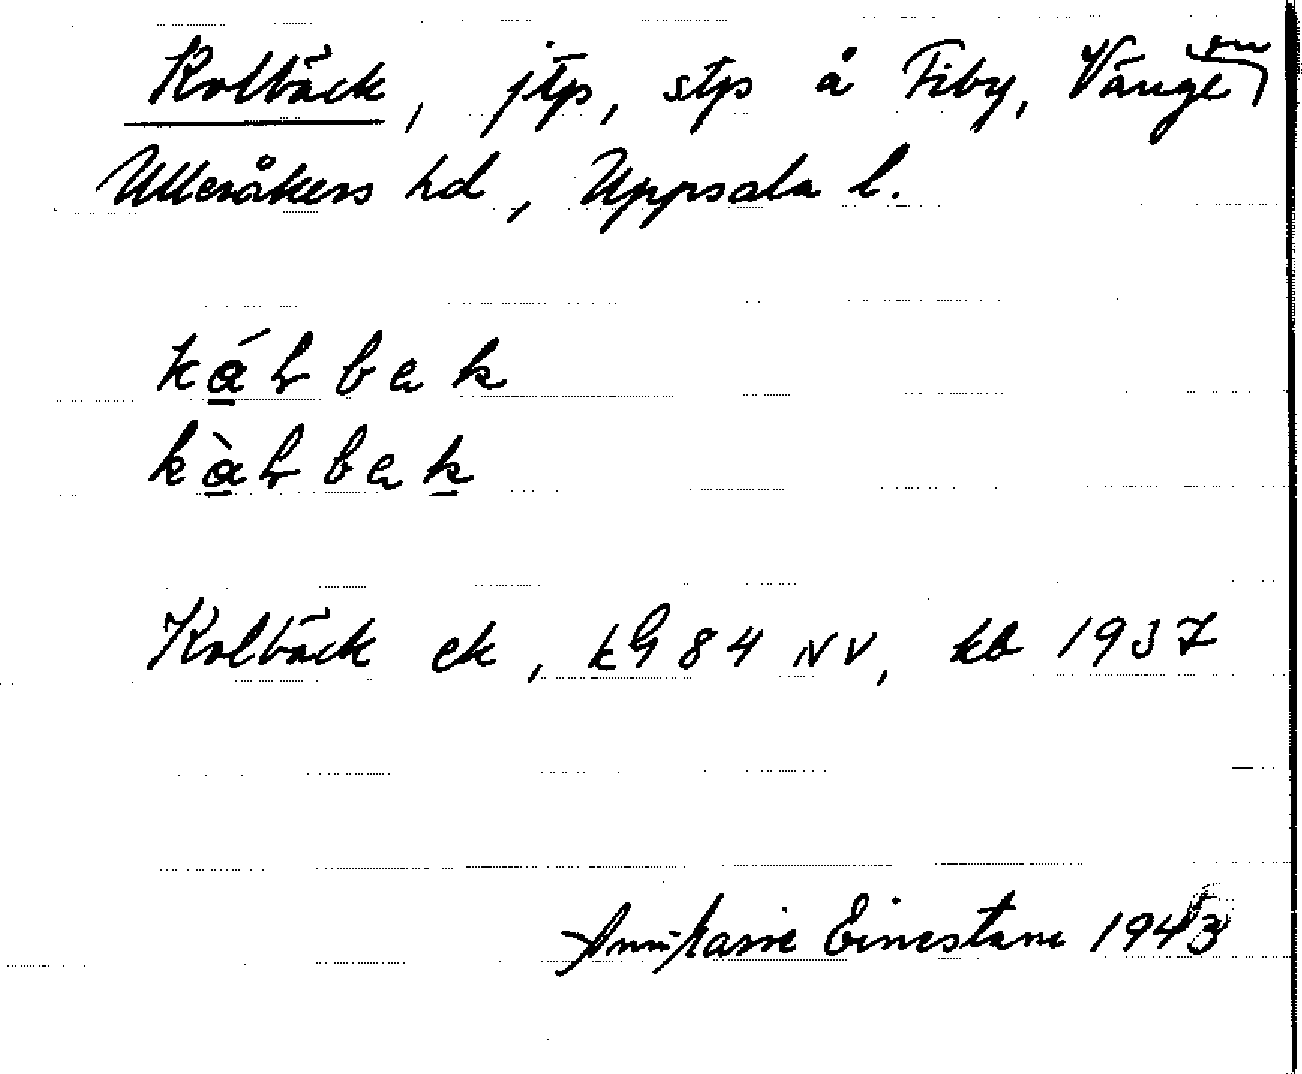 Kolbäck, jtp, stp å Fiby, Vänge sn
Ulleråkers hd, Uppsala l.
kálbak
kàlbak
Kolbäck ek, kG 84 NV, kb 1937
Einestam 1943